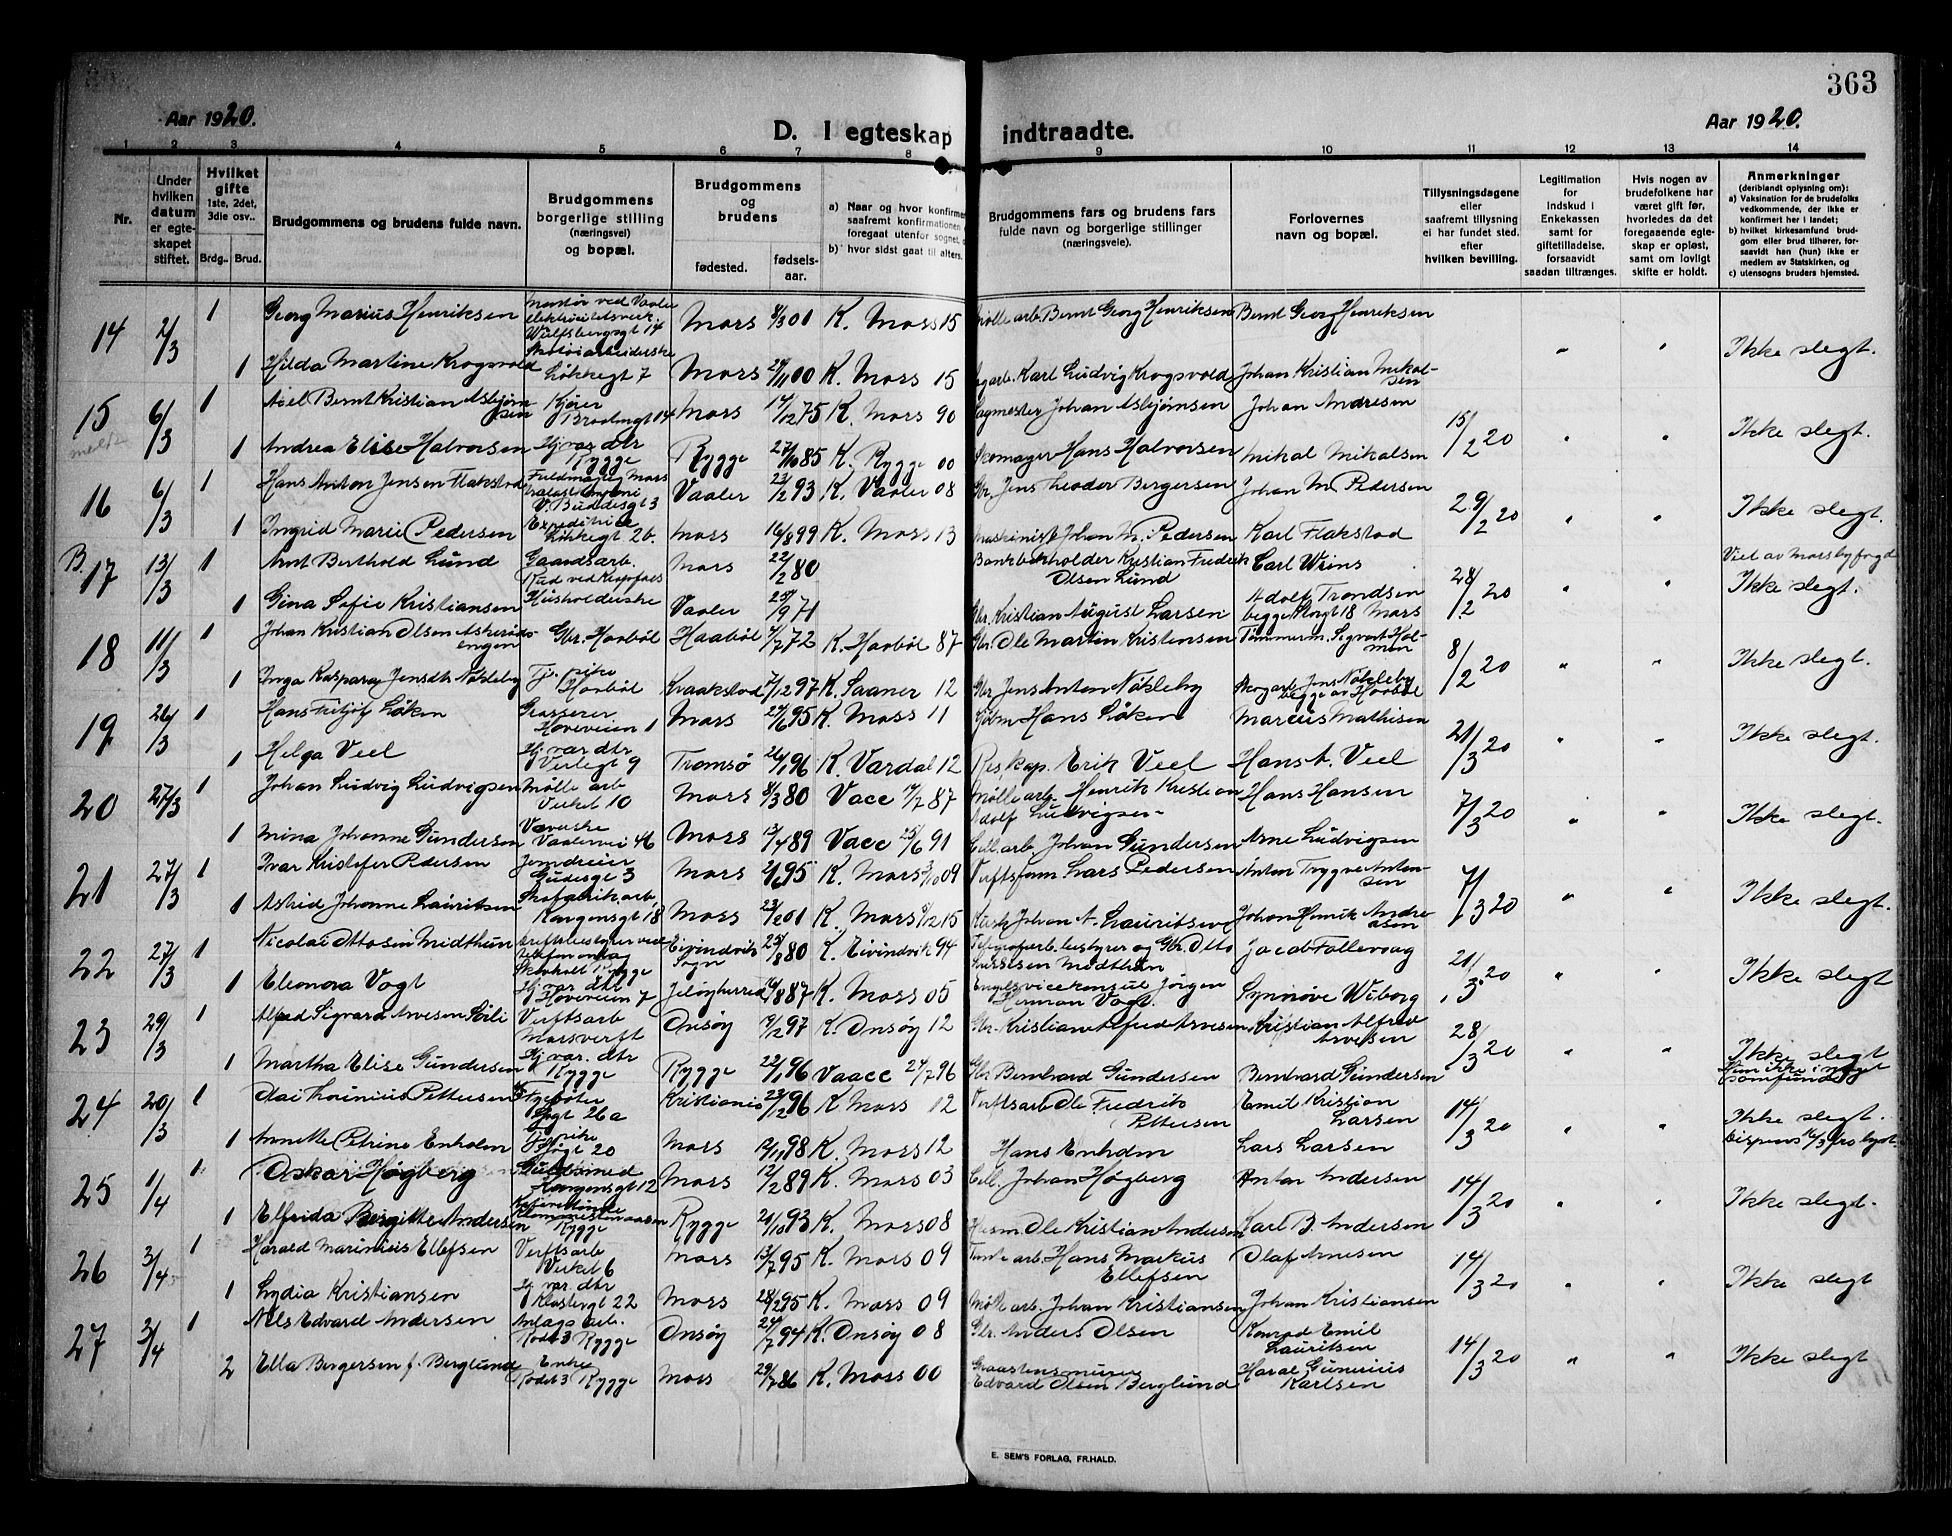 363
Aar 1920.
D. I egteskap indtraadte.
Aar 1920.
1 2 3 4 5 6 7 8 9 10 11 12 13 14
Nr.
Under hvilken datum er egteskapet stiftet.
Hvilket gifte 1ste, 2det, 3die osv..
Brdg.. Brud.
Brudgommens og brudens fulde navn.
Brudgommens borgerlige stilling (næringsvei) og bopæl.
Brudgommens og brudens
fødested.
fødselsaar.
a) Naar og hvor konfirm
saafremt konfirmationen
foregaat utenfor sognet,
b) hvor sidst gaat til alters.
Brudgommens fars og brudens fars fulde navn og borgerlige stillinger (næringsveie).
Forlovernes navn og bopæl.
Tillysningsdagene eller saafremt tillysning ei har fundet sted. efter hvilken bevilling.
Legitimation for Indskud i Enkekassen samt for giftetilladelse, forsaavidt saadan tiltrænges.
Hvis nogen av brudefolkene har været gift før, hvorledes da det foregaaende egteskap er opløst, samt om lovligt skifte er holdt.
Anmerkninger (deriblandt oplysning om): a) Vaksination for de brudefolks vedkommende, der ikke er konfirmert her i landet; b) hvilket kirkesamfund brudgom eller brud tilhører, forsaavidt han (hun) ikke er medlem av Statskirken, og c) utensogns bruders hjemsted.
14 2/3 1 Georg Marius Henriksen Montør ved Vaaler elektricitetsverk. Wulfsbergsgt 14 Moss 8/3 01 K. Moss 15 Mølle arb. Bernt Georg Henriksen Bernt Georg Henriksen
1 Hilda Martine Krogsvold Løkkegt 7 Moss 24/11 00 K. Moss 15 Karl Ludvig Krogsvold Johan Kristian Mikalsen " " Ikke slegt.
15 6/3 1 Axel Bernt Kristian Asbjørnsen Kjører 14 Moss 14/12 75 K. Moss 90 Sagmester Johan Asbjørnsen Johan Andresen
1 Andrea Elise Halvorsen Hj.var. dtr Rygge Rygge 27/10 85 K. Rygge 00 Skomager Hans Halvorsen Mikal Mikalsen 15/2 20 " " Ikke slegt.
16 6/3 1 Hans Anton Jensen Flakstad V. Bundesgt 3 Vaaler 23/2 93 K. Vaaler 08 Gbr. Jens Teodor Bergersen Johan M. Pedersen
1 Ingrid Marie Pedersen Løkkegt 26. Moss 16/8 99 K. Moss 13 Maskinist Johan M. Pedersen Karl Flakstad 29/2 20 " " Ikke slegt.
B. 17 13/3 1 Arnt Berthold Lund Gaardsarb. Moss 22/2 80 Bankbokholder Kristian Fredrik Olsen Lund Carl Wiins Viet av Moss byfogd
1 Gina Sofie Kristiansen Husholderske Vaaler 25/9 71 Gbr. Kristian August Larsen Adolf Trondsen begge Storgt 18 Moss 28/2 20 " " Ikke slegt.
18 11/3 1 Johan Kristian Olsen Gbr. Haabøl Haabøl 4/7 72 K. Haabøl 87 Gbr. Ole Martin Kristensen Tømmerm. Sigvart Holmen
1 Inga Kaspara Jensdtr Nøkleby Tj. pike Haabøl Kraakstad 7/12 97 K. Saaner 12 Gbr Jens Anton Nøkleby Skogarb. Jens Nøkleby begge av Haabøl 8/2 20 " " Ikke slegt.
19 26/3 1 Hans Fritjof Løken Grosserer Høveveien 1 Moss 24/6 95 K. Moss 11 Kjøbm Hans Løken Marcus Mathisen
1 Helga Veel Hj. var dtr Verlegt 9 Tromsø 26/1 96 K. Vardal 12 Res. kap. Erik Veel Hans A. Veel 21/3 20 " " Ikke slegt.
20 27/3 1 Johan Ludvig Ludvigsen Mølle arb Verket 10 Moss 8/3 80 Vacc 14/7 87 Mølle arb. Henrik Kristian Adolf Ludvigsen Hans Hansen
1 Mina Johanne Gundersen Væverske Vaalerveien 46 Moss 13/4 89 Vacc 25/6 91 Cell. arb Johan Gundersen Arne Ludvigsen 7/3 20 " " Ikke slegt.
21 27/3 1 Ivar Kristofer Pedersen Gudesgt 3 Moss 95 K. Moss 3/10 09 Verftsform Lars Pedersen Anton Trygve Antonsen
1 Astrid Johanne Lauritsen Skofabrik. arb, Kongensgt 18 Moss 23/2 01 K. Moss 5/12 15 Kusk Johan A. Lauritsen Johan Henrik Andreasen 7/3 20 " " Ikke slegt.
22 27/3 1 Nicolai Ottosen Midthun Driftsbestyrer ved Rygge Eivindvik Sogn 25/8 80 K. Eivindvik 94 bestyrer og Gbr. Otto Midthun Jacob Follevaag
1 Eleonora Vogt Hj. var dtr Høveveien 7 Jeløy herred 14/8 87 K. Moss 05 Engelsk vicekonsul Jørgen Herman Vogt. Synnøve Wiborg 21/3 20 " " Ikke slegt
23 29/3 1 Alfred Sigvard Arvesen Verftsarb Moss verft Onsøy 19/2 97 K. Onsøy 12 Gbr. Kristian Alfred Arvesen Kristian Alfred Arvesen
1 Martha Elise Gundersen Hj. var. dtr Rygge Rygge 22/1 96 Vaacc 24/7 96 Gbr Bernhard Gundersen Bernhard Gundersen 28/3 20 " " Ikke slegt Hun ikke i noget samfund
24 20/3 1 Olai Thorinius Pettersen Fyrbøter 26a Kristiania 22/12 96 K Moss 12 Verftsarb Ole Fredrik Pettersen Emil Kristian Larsen
1 Annette Petrine Enholm Tj. pike 20 Moss 12/11 98 K. Moss 12 Hans Enholm Lars Larsen 14/3 20 " " Ikke slegt.
25 1/4 1 Oskar Høgberg Guldsmed Kongensgt 12 Moss 12/2 89 K. Moss 03 Cell. Johan Høgberg Anton Andersen
1 Elfrida Birgitte Andersen Rygge Rygge 20/10 93 K. Moss 08 Husm. Ole Kristian Andersen Karl B. Andersen 14/3 20 " " Ikke slegt.
26 3/4 1 Harald Marinius Ellefsen Verftsarb Verket 6 Moss 13/7 95 K. Moss 09 Hans Markus Ellefsen Olaf Arnesen
1 Lydia Kristiansen Hj. var. dtr Klostergt 22 Moss 28/12 95 K. Moss 09 Mølle arb. Johan Kristiansen Johan Kristiansen 14/3 20 " " Ikke slegt
27 3/4 1 Nils Edvard Andersen Anlægs arb. Rygge Onsøy 24/7 94 K. Onsøy 08 Gbr. Anders Olsen Konrad Emil Lauritsen
2 Ella Bergersen f. Berglund Enke Rygge Moss 29/7 86 K. Moss 00 Graastensmurer Edvard Olsen Berglund Harald Gunerius Karlsen 14/3 20 " " Ikke slegt
E. SEM'S FORLAG, FR.HALD.